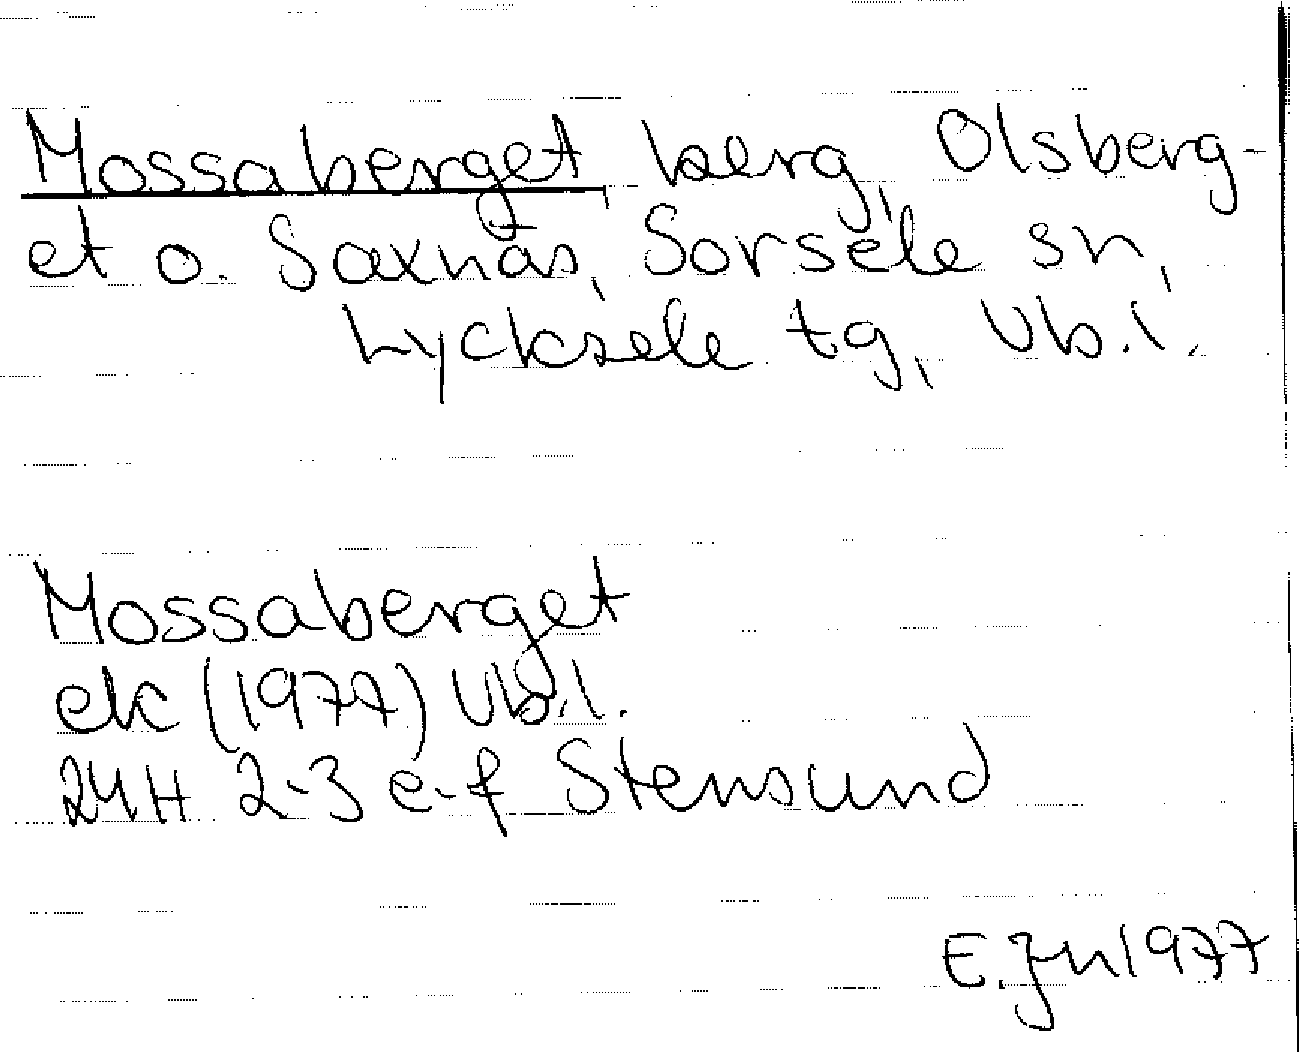 Mossaberget, berg, Olsberg-
et o. Saxnäs, Sorsele sn,
Lycksele tg, Vb.l.
Mossaberget
ek (1977) Vb.l.
24H 2-3 e-f Stensund
E.Jn 1977